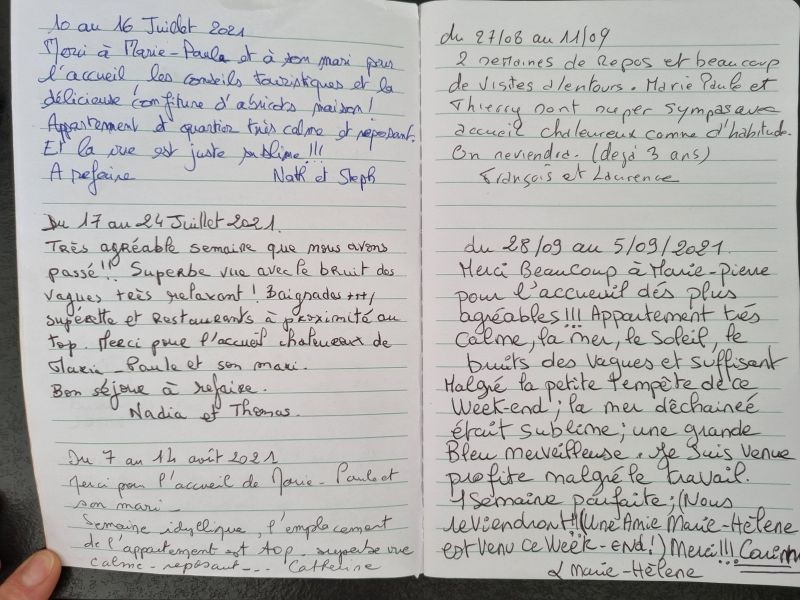 10 au 16 Juillet 2021
Merci à Marie-Paula et à son mari pour
l'accueil les conseils touristiques et la
délicieuse confiture d'abricots maison!
Appartement et quartier très calme et reposant.
Et la vue est juste sublime!!!
A refaire Nath et Steph
Du 17 au 24 Juillet 2021.
Très agréable semaine que nous avons
passé!! Superbe vue avec le bruit des
vagues très relaxant! Baignades +++/
supérette et Restaurants à proximité au
top. Merci pour l'accueil chaleureux de
Marie-Paule et son mari.
Bon séjour à refaire.
Nadia et Thomas.
Du 7 au 14 août 2021
Merci pour l'accueil de Marie-Paule et
son mari.
Semaine idyllique, l'emplacement
de l'appartement est top. superbe vue
calme-reposant... Catherine
du 27/08 au 11/09
2 semaines de Repos et beaucoup
de visites alentours. Marie Paule et
Thierry sont super sympas avec
accueil chaleureux comme d'habitude.
On reviendra. (dejà 3 ans)
François et Laurence
du 28/09 au 5/09/2021.
Merci Beaucoup à Marie-pierre
pour l'accueuil dés plus
agréables!!! Appartement trés
Calme, la mer, le Soleil, le
bruits des Vagues et suffisent
Malgré la petite tempête de ce
Week-end; la mer dêchaineé
était sublime; une grande
Bleu merveilleuse. Je Suis Venue
profite malgré le travail.
1 Semaine parfaite; (Nous
reviendront!!! (Une Amie Marie-Hélène
est venu ce Week-END!) Merci!!!
& Marie-Hélène